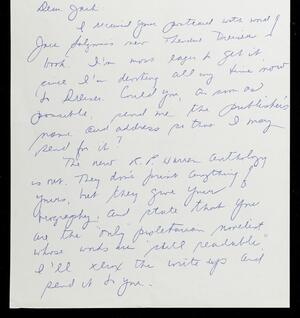 Dear Jack:
I received your postcard with word of
Jack Salzman's new Theodore Dreiser
book. I'm most eager to get it
since I'm devoting all my time now
to Dreiser. Could you, as soon as
possible, send me the publisher's
name and address so that I may
send for it?
The new R. P. Warren anthology
is out. They don't print anything of
yours, but they give your
biography, and state that you
are the "only proletarian novelist
whose works are "still readable."
I'll xerox the write-ups and
send it to you.